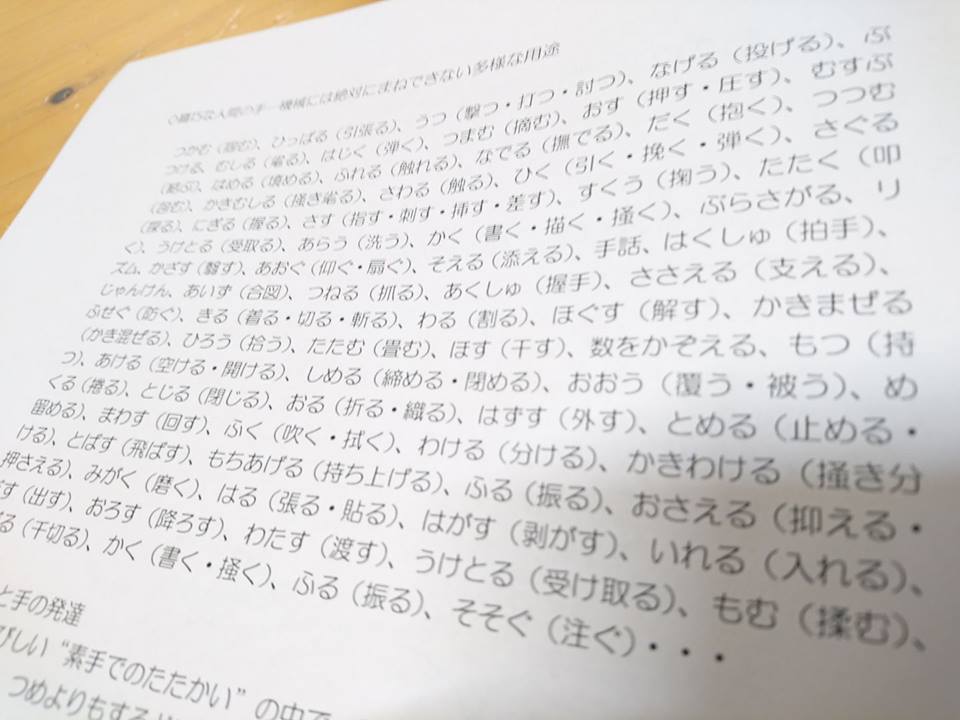 ◇精巧な人間の手…機械には絶対にまねできない多様な用途
つかむ（掴む）、ひっぱる（引張る）、うつ（撃つ・打つ・討つ）、なげる（投げる）、ぶ
つける、むしる（毟る）、はじく（弾く）、つまむ（摘む）、おす（押す・圧す）、むすぶ
（結ぶ）、はめる（填める）、ふれる（触れる）、なでる（撫でる）、だく（抱く）、つつむ
（包む）、かきむしる（掻き毟る）、さわる（触る）、ひく（引く・挽く・弾く）、さぐる
（探る）、にぎる（握る）、さす（指す・刺す・挿す・差す）、すくう（掬う）、たたく（叩
く）、うけとる（受取る）、あらう（洗う）、かく（書く・描く・掻く）、ぶらさがる、リ
ズム、かざす（翳す）、あおぐ（仰ぐ・扇ぐ）、そえる（添える）、手話、はくしゅ（拍手）、
じゃんけん、あいず（合図）、つねる（抓る）、あくしゅ（握手）、ささえる（支える）、
ふせぐ（防ぐ）、きる（着る・切る・斬る）、わる（割る）、ほぐす（解す）、かきまぜる
（かき混ぜる）、ひろう（拾う）、たたむ（畳む）、ほす（干す）、数をかぞえる、もつ（持
つ）、あける（空ける・開ける）、しめる（締める・閉める）、おおう（覆う・被う）、め
くる（捲る）、とじる（閉じる）、おる（折る・織る）、はずす（外す）、とめる（止める・
留める）、まわす（回す）、ふく（吹く・拭く）、わける（分ける）、かきわける（掻き分
ける）、とばす（飛ばす）、もちあげる（持ち上げる）、ふる（振る）、おさえる（抑える・
押さえる）、みがく（磨く）、はる（張る・貼る）、はがす（剥がす）、いれる（入れる）、
す（出す）、おろす（降ろす）、わたす（渡す）、うけとる（受け取る）、もむ（揉む）、
る（千切る）、かく（書く・掻く）、ふる（振る）、そそぐ（注ぐ）・・・
と手の発達
びしい“素手でのたたかい”の中で
つめよりもする